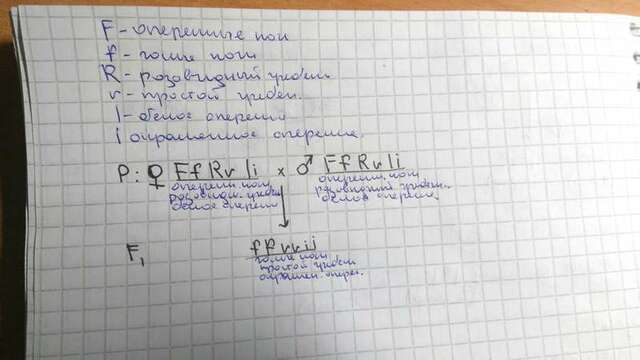 F - оперенные ноги
f - голые ноги
R - розовидный гребень
r - простой гребень.
I - белое оперение
i окрашенное оперение.
P: ♀ Ff Rr Ii × ♂ Ff Rr Ii
оперен. ноги оперен. ноги
розовидн. гребень розовидный гребень.
белое оперен. белое оперение,
F₁ ff rr ii
голые ноги
простой гребень
окрашен. оперен.